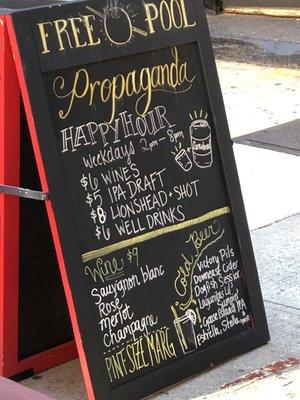 FREE POOL
Propaganda
HAPPY HOUR
Weekdays 2pm-8pm
$6 WINES
$5 IPA DRAFT
$8 LIONSHEAD + SHOT
$6 WELL DRINKS
Wine $9
Sauvignon blanc
Rosé
merlot
Champagne
PINT SIZE MARG
Cold Beer
Victory Pils
Downeast Cider
Dogfish Session
Lagunitas
Goose Island IPA
Estrella, Stella